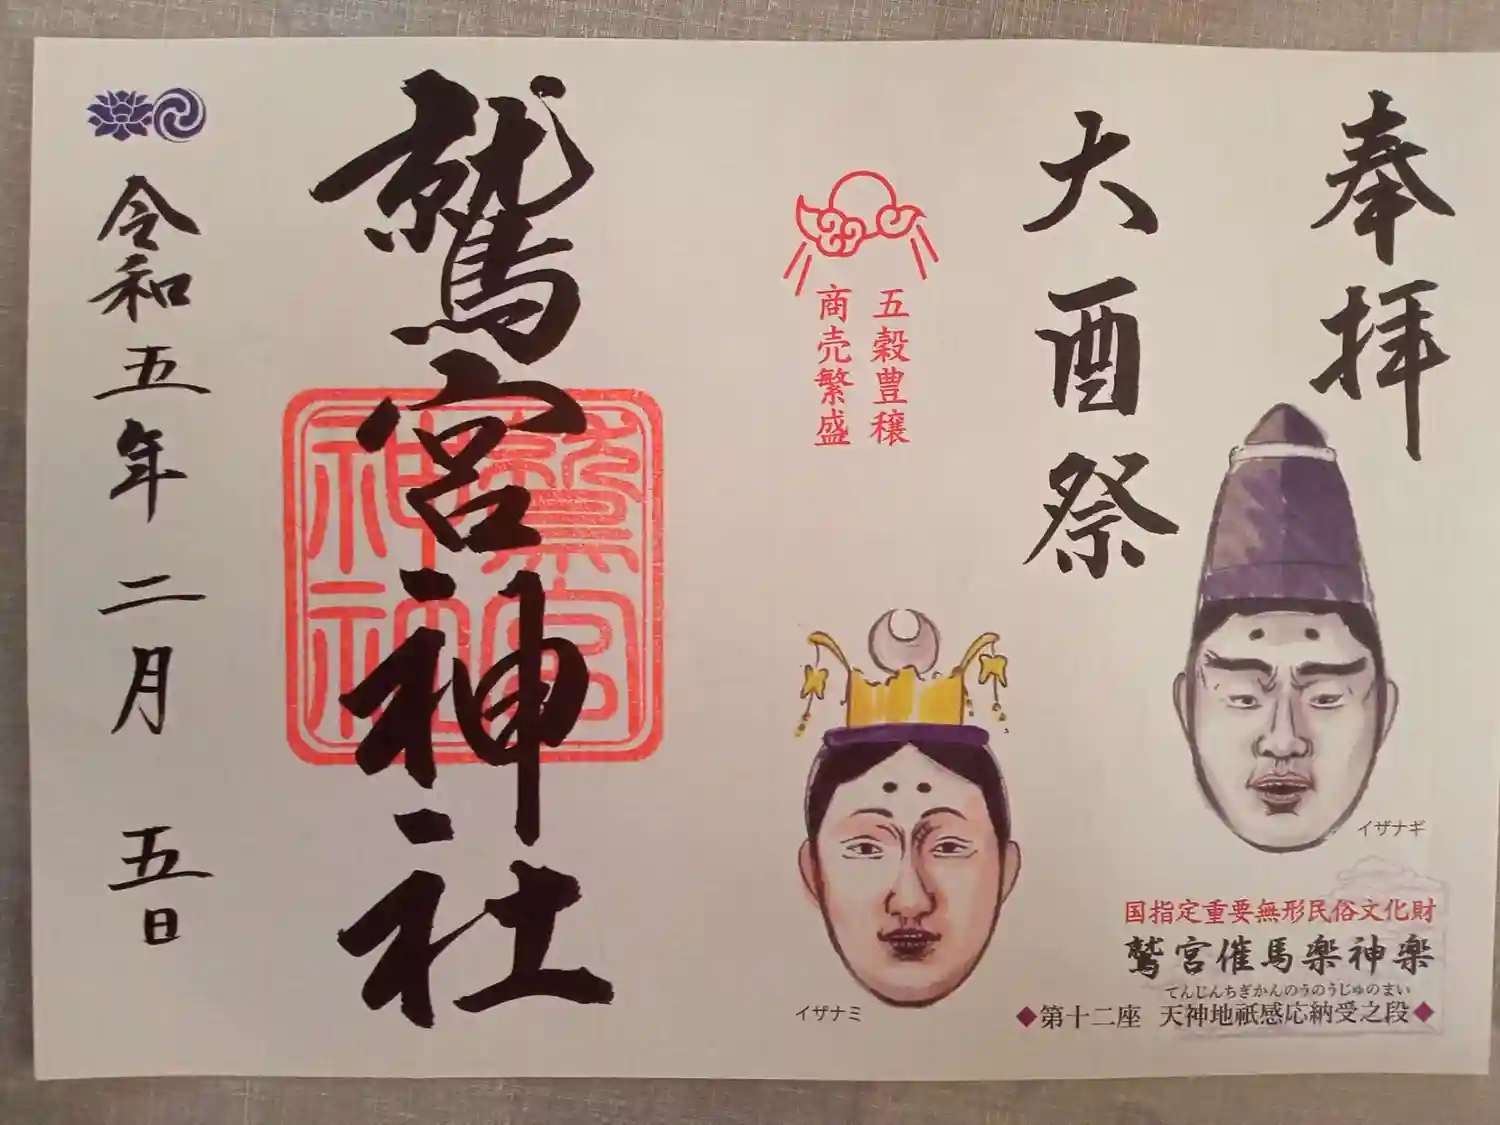 奉拝
大酉祭
五穀豊穣
商売繁盛
イザナギ
イザナミ
国指定重要無形民俗文化財
鷲宮催馬楽神楽
てんじんちぎかんのうのうじゅのまい
◆第十二座 天神地祇感応納受之段◆
鷲宮神社
鷲宮
神社
令和五年二月五日